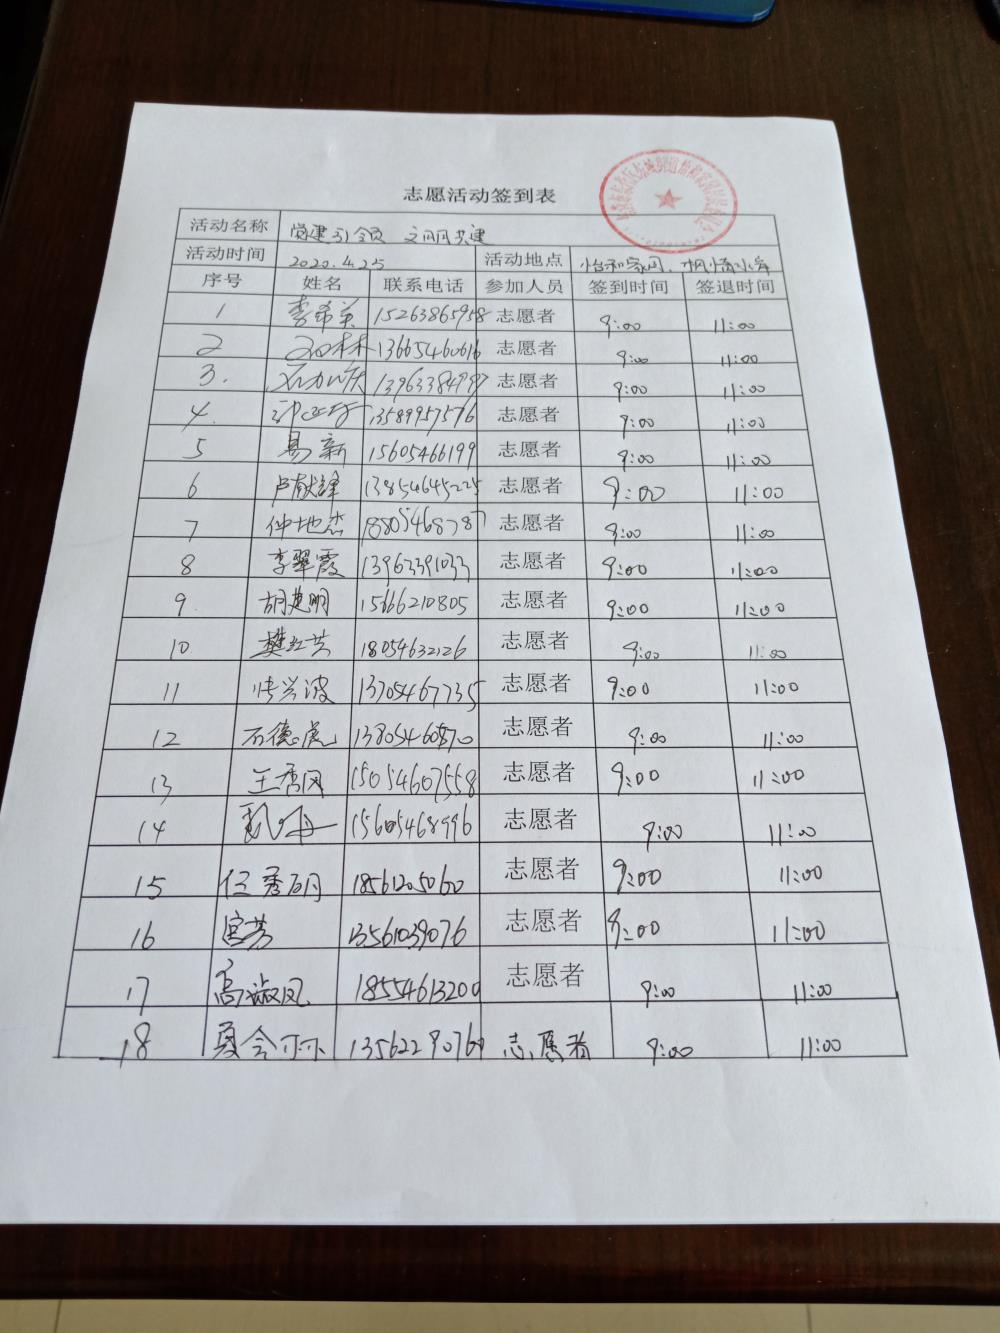 志愿活动签到表
活动名称 党建引领 文明共建
活动时间 2020.4.25 活动地点 怡和家园、梧桐小岸
序号 姓名 联系电话 参加人员 签到时间 签退时间
1 李希英 15263865958 志愿者 9:00 11:00
2 林 13665460616 志愿者 9:00 11:00
3. 13963384997 志愿者 9:00 11:00
4. 13589957576 志愿者 9:00 11:00
5 易新 15605466199 志愿者 9:00 11:00
6 卢献峰 13854645225 志愿者 9:00 11:00
7 仲地杰 18805468787 志愿者 9:00 11:00
8 李翠霞 13963391033 志愿者 9:00 11:00
9. 胡建明 15666210805 志愿者 9:00 11:00
10 樊红芸 18054632126 志愿者 9:00 11:00
11 张兴波 13705467735 志愿者 9:00 11:00
12 石德虎 13805460870 志愿者 9:00 11:00
13 王秀风 15054607558 志愿者 9:00 11:00
14 15605468996 志愿者 9:00 11:00
15 任秀丽 18561205060 志愿者 9:00 11:00
16 宫芳 13561039076 志愿者 9:00 11:00
17 高淑凤 18554613200 志愿者 9:00 11:00
18 夏会 13562290760 志愿者 9:00 11:00